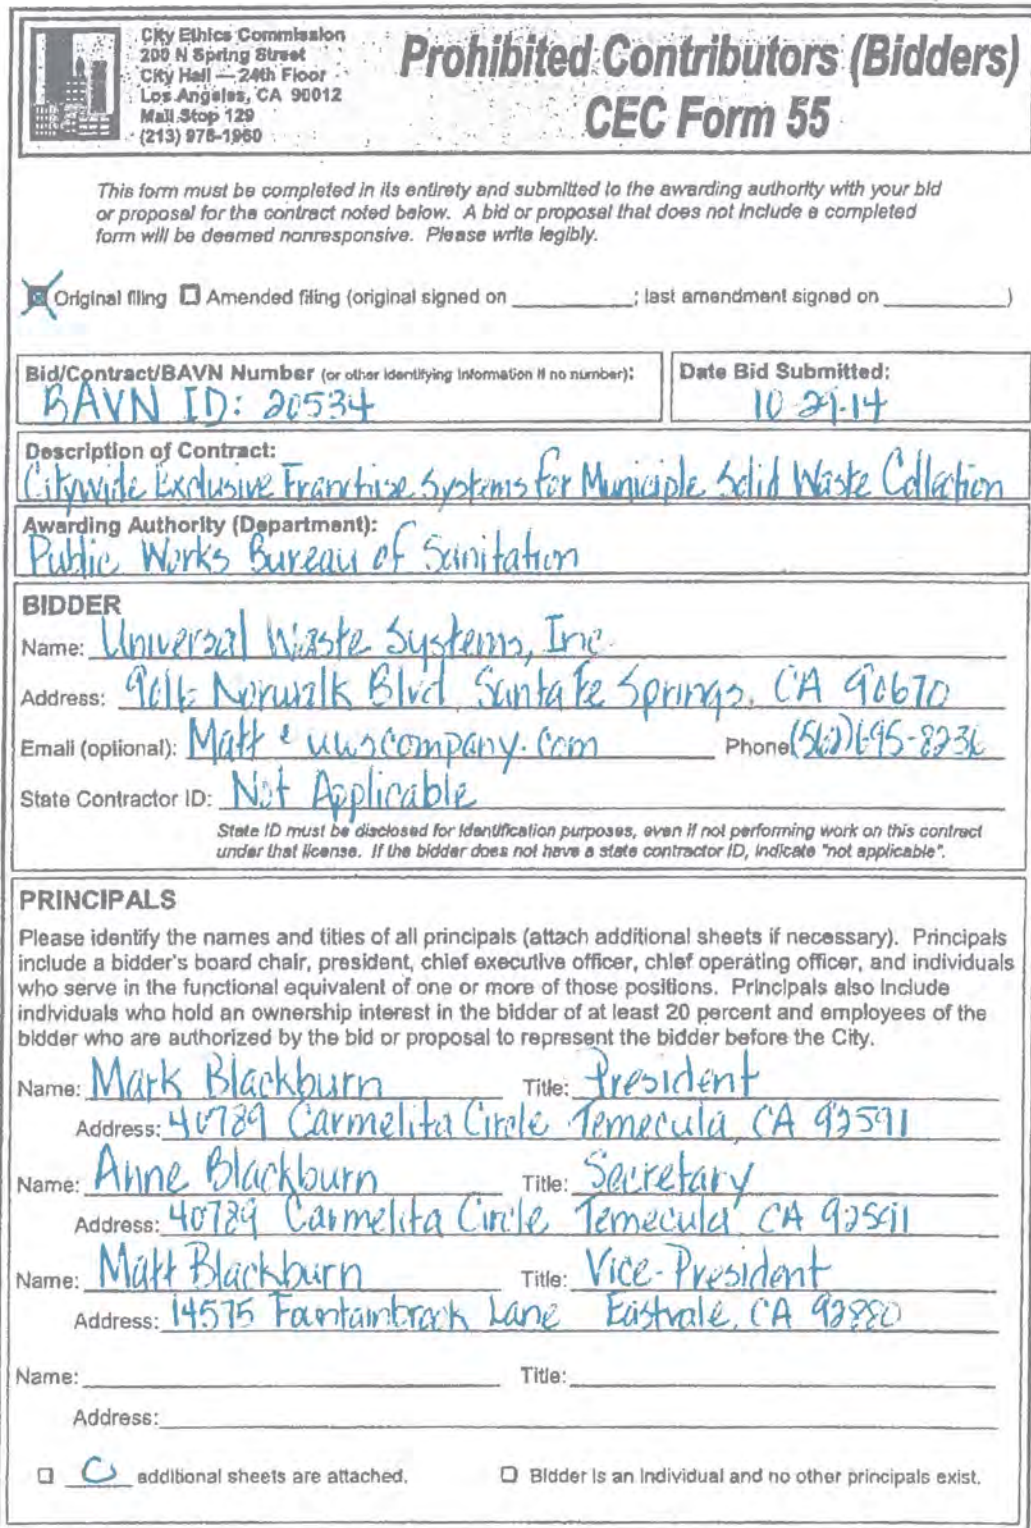 City Ethics Commission
200 N Spring Street
City Hall — 24th Floor
Los Angeles, CA 90012
Mail Stop 129
(213) 978-1960
Prohibited Contributors (Bidders)
CEC Form 55
This form must be completed in its entirety and submitted to the awarding authority with your bid
or proposal for the contract noted below. A bid or proposal that does not include a completed
form will be deemed nonresponsive. Please write legibly.
Original filing Amended filing (original signed on ; last amendment signed on )
Bid/Contract/BAVN Number (or other identifying information if no number):
BAVN ID: 20534
Date Bid Submitted:
10-29-14
Description of Contract:
Citywide Exclusive Franchise Systems for Municiple Solid Waste Collection
Awarding Authority (Department):
Public Works Bureau of Sanitation
BIDDER
Name: Universal Waste Systems, Inc.
Address: 9016 Norwalk Blvd Santa Fe Springs, CA 90670
Email (optional): Matt@uwscompany.com Phone (562)695-8236
State Contractor ID: Not Applicable
State ID must be disclosed for identification purposes, even if not performing work on this contract
under that license. If the bidder does not have a state contractor ID, indicate "not applicable".
PRINCIPALS
Please identify the names and titles of all principals (attach additional sheets if necessary). Principals
include a bidder's board chair, president, chief executive officer, chief operating officer, and individuals
who serve in the functional equivalent of one or more of those positions. Principals also include
individuals who hold an ownership interest in the bidder of at least 20 percent and employees of the
bidder who are authorized by the bid or proposal to represent the bidder before the City.
Name: Mark Blackburn Title: President
Address: 40789 Carmelita Circle Temecula, CA 92591
Name: Anne Blackburn Title: Secretary
Address: 40789 Carmelita Circle Temecula CA 92591
Name: Matt Blackburn Title: Vice-President
Address: 14575 Fountainbrook Lane Eastvale, CA 92880
Name: Title:
Address:
0 additional sheets are attached. Bidder is an individual and no other principals exist.